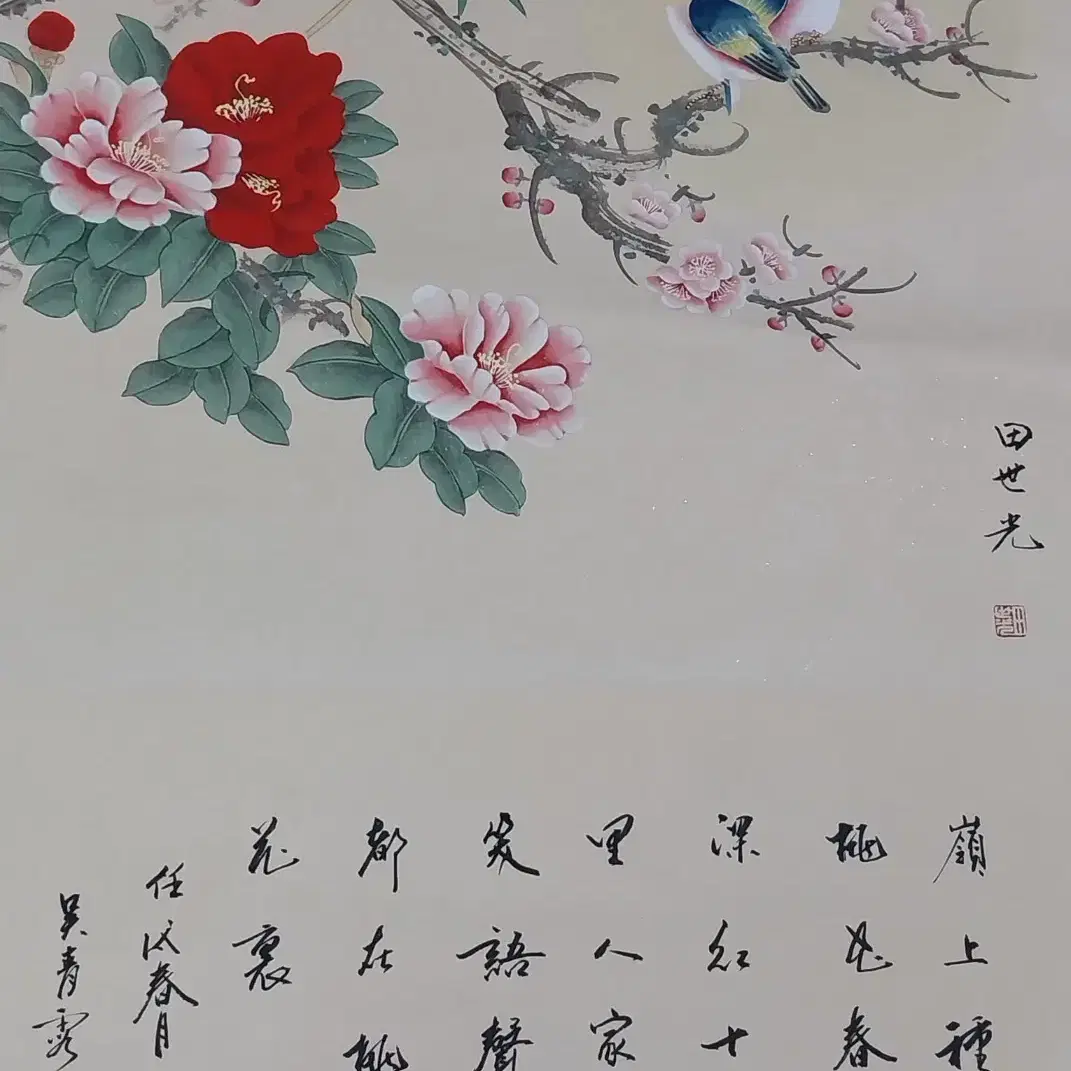 田世光
嶺上種
桃花春
深紅十
里人家
笑語聲
都在桃
花裏
任戌春月
吳青霞